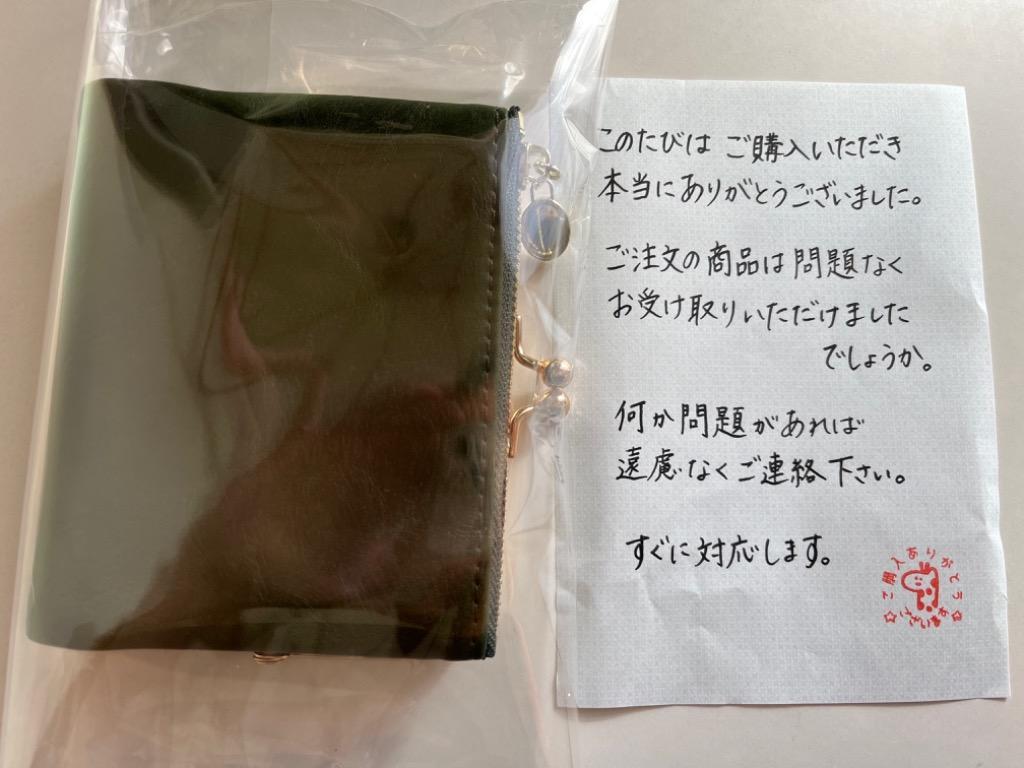 このたびは ご購入いただき
本当にありがとうございました。
ご注文の商品は問題なく
お受け取りいただけました
でしょうか。
何か問題があれば
遠慮なくご連絡下さい。
すぐに対応します。
ご購入ありがとう
ございます